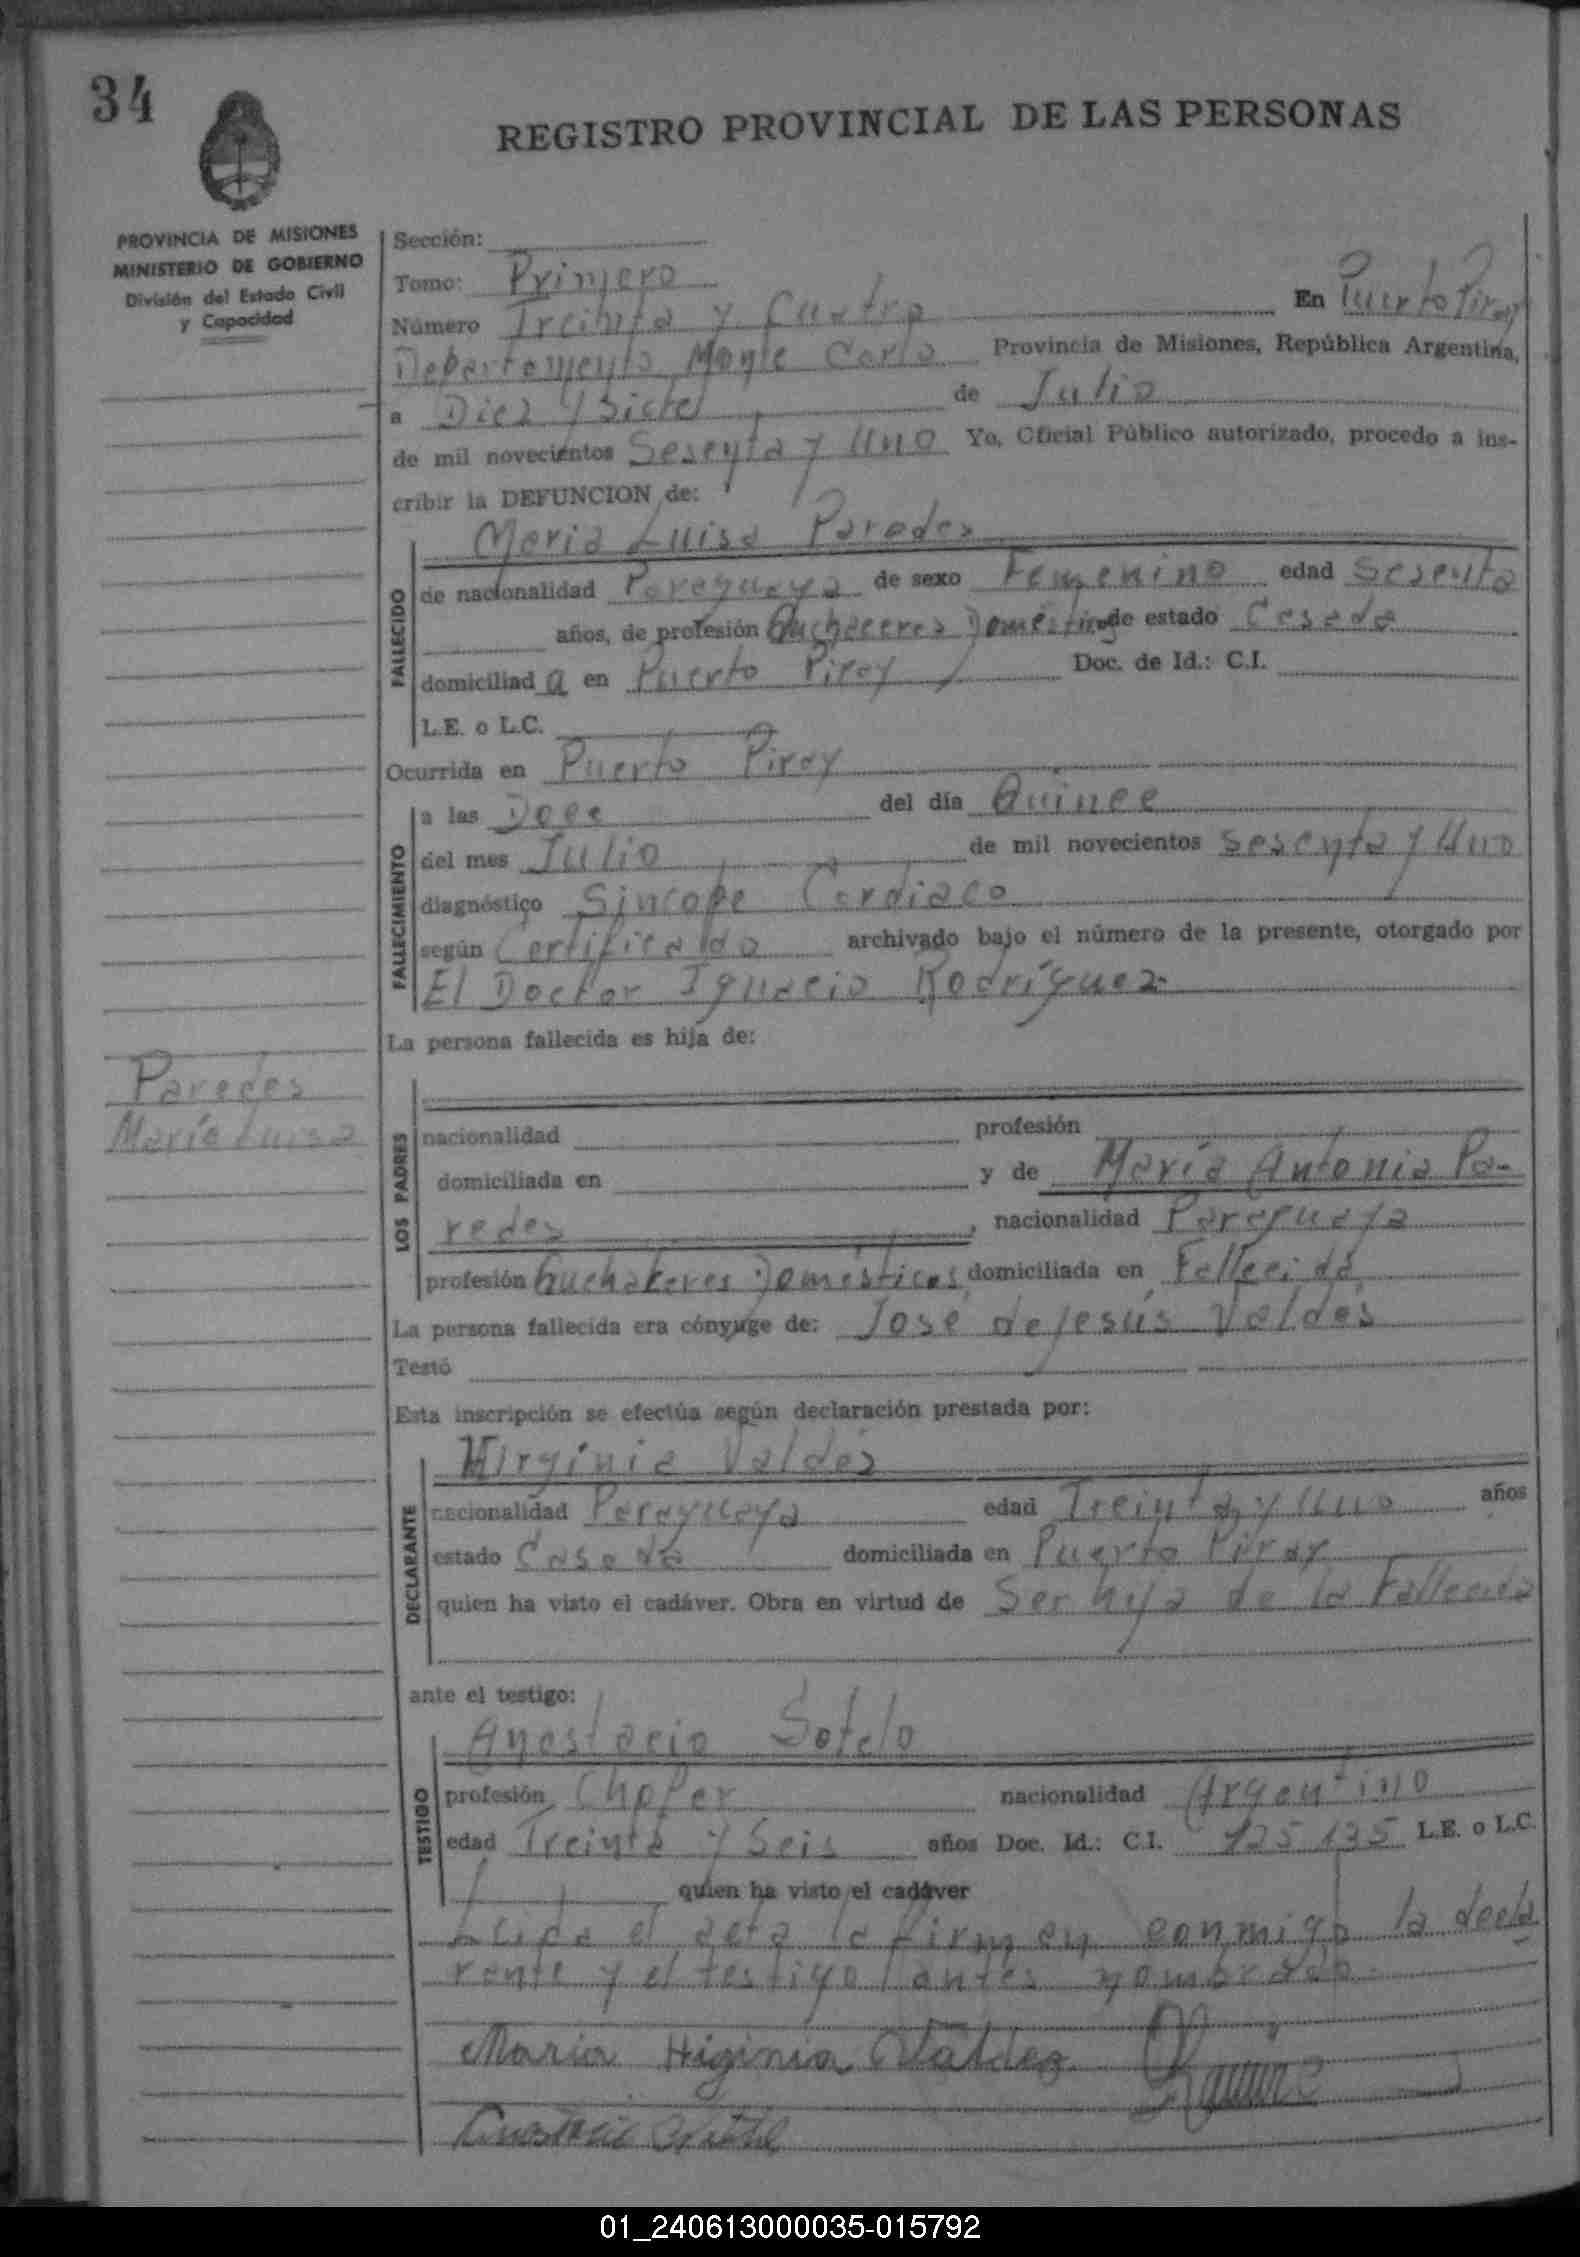 34
REGISTRO PROVINCIAL DE LAS PERSONAS
PROVINCIA DE MISIONES
MINISTERIO DE GOBIERNO
División del Estado Civil
y Capacidad
Sección:
Tomo: Primero
Número Treinta y Cuatro En Puerto Piray
Departamento Monte Carlo Provincia de Misiones, República Argentina,
a Diez y Siete de Julio
de mil novecientos Sesenta y Uno Yo, Oficial Público autorizado, procedo a ins-
cribir la DEFUNCION de:
Maria Luisa Paredes
FALLECIDO
de nacionalidad Paraguaya de sexo Femenino edad Sesenta
años, de profesión Quehaceres Domésticos de estado Casada
domiciliad a en Puerto Piray Doc. de Id.: C.I.
L.E. o L.C.
Ocurrida en Puerto Piray
FALLECIMIENTO
a las Doce del día Quince
del mes Julio de mil novecientos Sesenta y Uno
diagnóstico Sincope Cardiaco
según Certificado archivado bajo el número de la presente, otorgado por
El Doctor Ignacio Rodríguez
La persona fallecida es hija de:
Paredes
María Luisa
LOS PADRES
nacionalidad profesión
domiciliada en y de María Antonia Pa-
redes, nacionalidad Paraguaya
profesión Quehaceres Domésticos, domiciliada en Fallecida
La persona fallecida era cónyuge de: José de Jesús Valdés
Testó
Esta inscripción se efectúa según declaración prestada por:
Hirginia Valdés
DECLARANTE
nacionalidad Paraguaya edad Treinta y Uno años
estado Casada domiciliada en Puerto Piray
quien ha visto el cadáver. Obra en virtud de Ser hija de la Fallecida
ante el testigo:
Anastacio Sotelo
TESTIGO
profesión Chofer nacionalidad Argentino
edad Treinta y Seis años Doc. Id.: C.I. 125.135 L.E. o L.C.
quien ha visto el cadáver
Leida el acta la firman conmigo la decla
rante y el testigo antes nombrado.
Maria Higinia Valdez
01_240613000035-015792